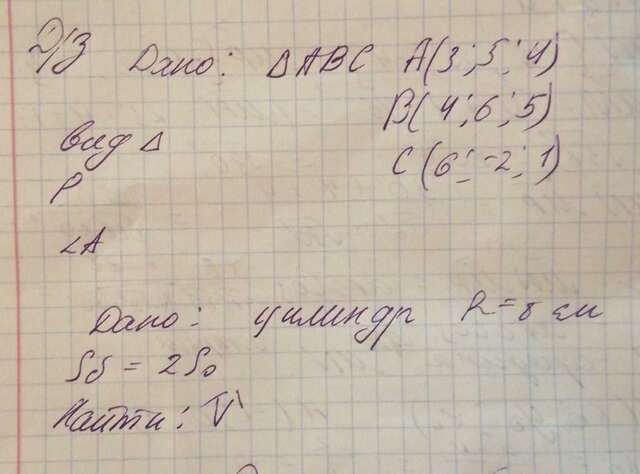 Д/З Дано: ΔABC A(3; 5; 4)
B(4; 6; 5)
вид Δ C(6; -2; 1)
P
∠A
Дано: цилиндр R = 8 см
Sб = 2So
Найти: V